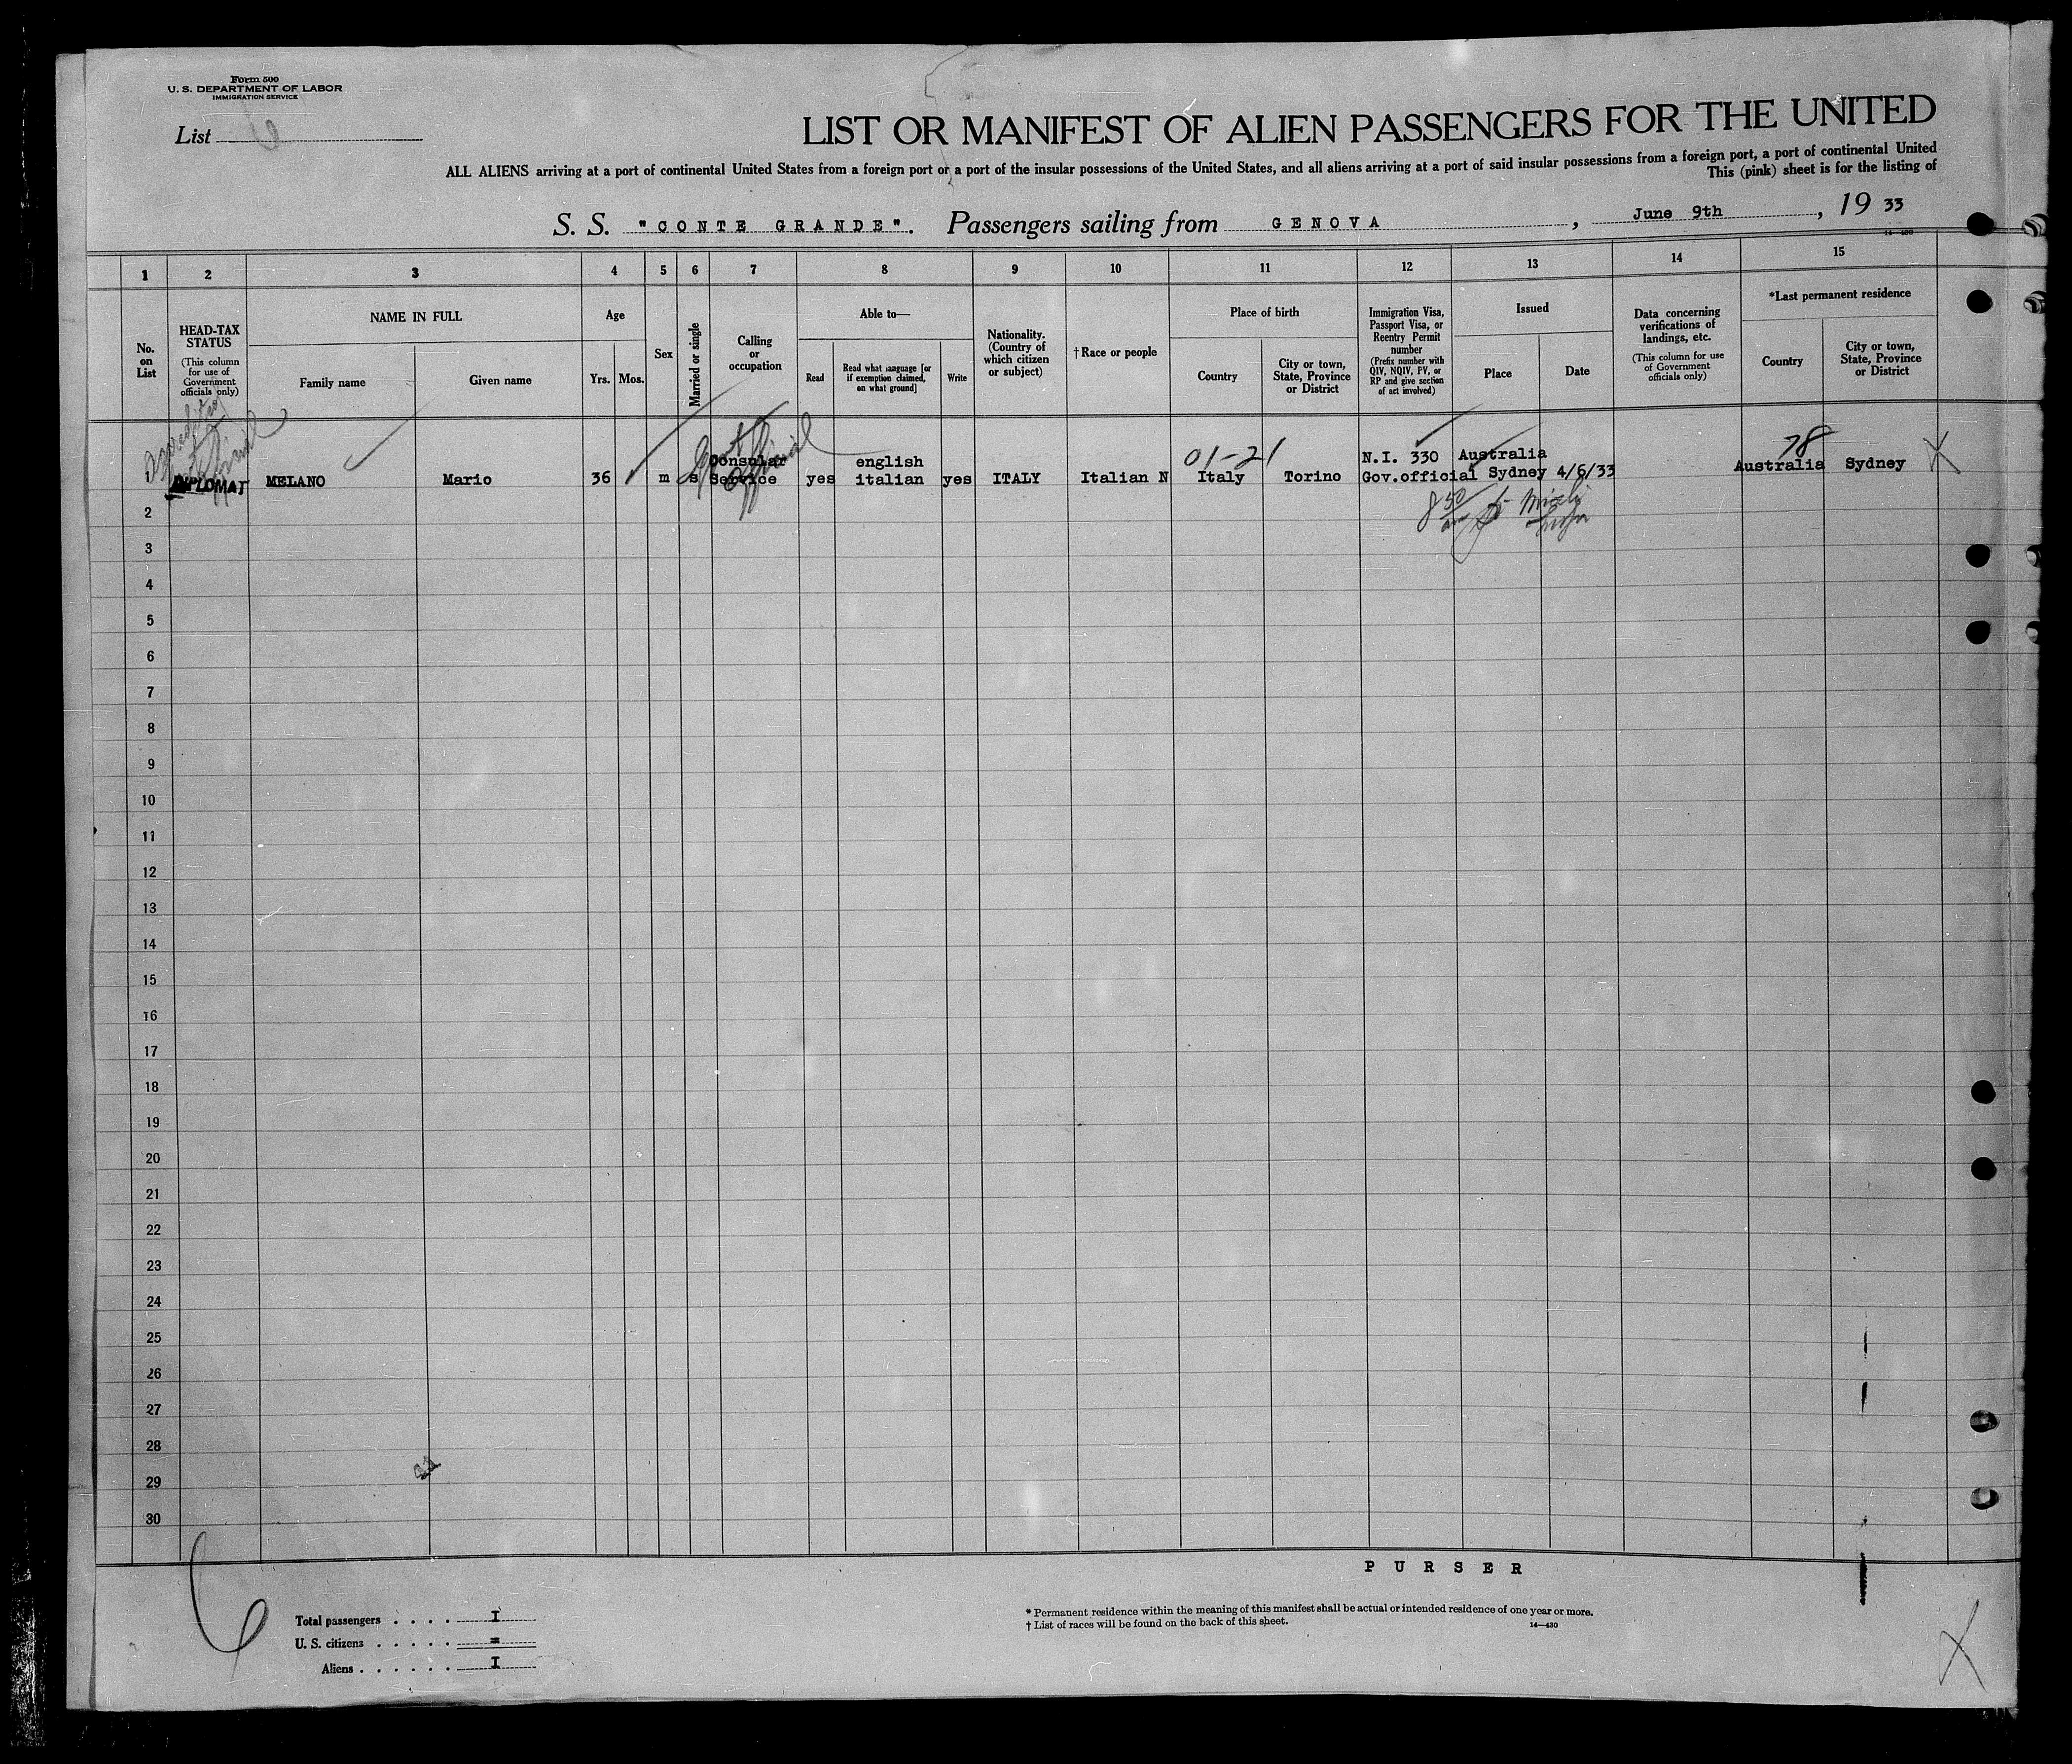 Form 500
U. S. DEPARTMENT OF LABOR
IMMIGRATION SERVICE
List 6
LIST OR MANIFEST OF ALIEN PASSENGERS FOR THE UNITED
ALL ALIENS arriving at a port of continental United States from a foreign port or a port of the insular possessions of the United States, and all aliens arriving at a port of said insular possessions from a foreign port, a port of continental United
This (pink) sheet is for the listing of
S. S. "CONTE GRANDE". Passengers sailing from GENOVA, June 9th, 19 33
14—430
1 2 3 4 5 6 7 8 9 10 11 12 13 14 15
No. on List
HEAD-TAX STATUS
(This column for use of Government officials only)
NAME IN FULL
Family name
Given name
Age
Yrs.
Mos.
Sex
Married or single
Calling or occupation
Able to—
Read
Read what language [or if exemption claimed, on what ground]
Write
Nationality. (Country of which citizen or subject)
†Race or people
Place of birth
Country
City or town, State, Province or District
Immigration Visa, Passport Visa, or Reentry Permit number
(Prefix number with QIV, NQIV, PV, or RP and give section of act involved)
Issued
Place
Date
Data concerning verifications of landings, etc.
(This column for use of Government officials only)
*Last permanent residence
Country
City or town, State, Province or District
Consular english 01-21 N.I. 330 Australia 78
1 DIPLOMAT MELANO Mario 36 m s Service yes italian yes ITALY Italian N Italy Torino Gov.official Sydney 4/6/33 Australia Sydney X
Gov't Official
2
3
4
5
6
7
8
9
10
11
12
13
14
15
16
17
18
19
20
21
22
23
24
25
26
27
28
29
30
PURSER
6
Total passengers . . . . I
U. S. citizens . . . . . =
Aliens . . . . . . I
* Permanent residence within the meaning of this manifest shall be actual or intended residence of one year or more.
† List of races will be found on the back of this sheet.
14—430
X